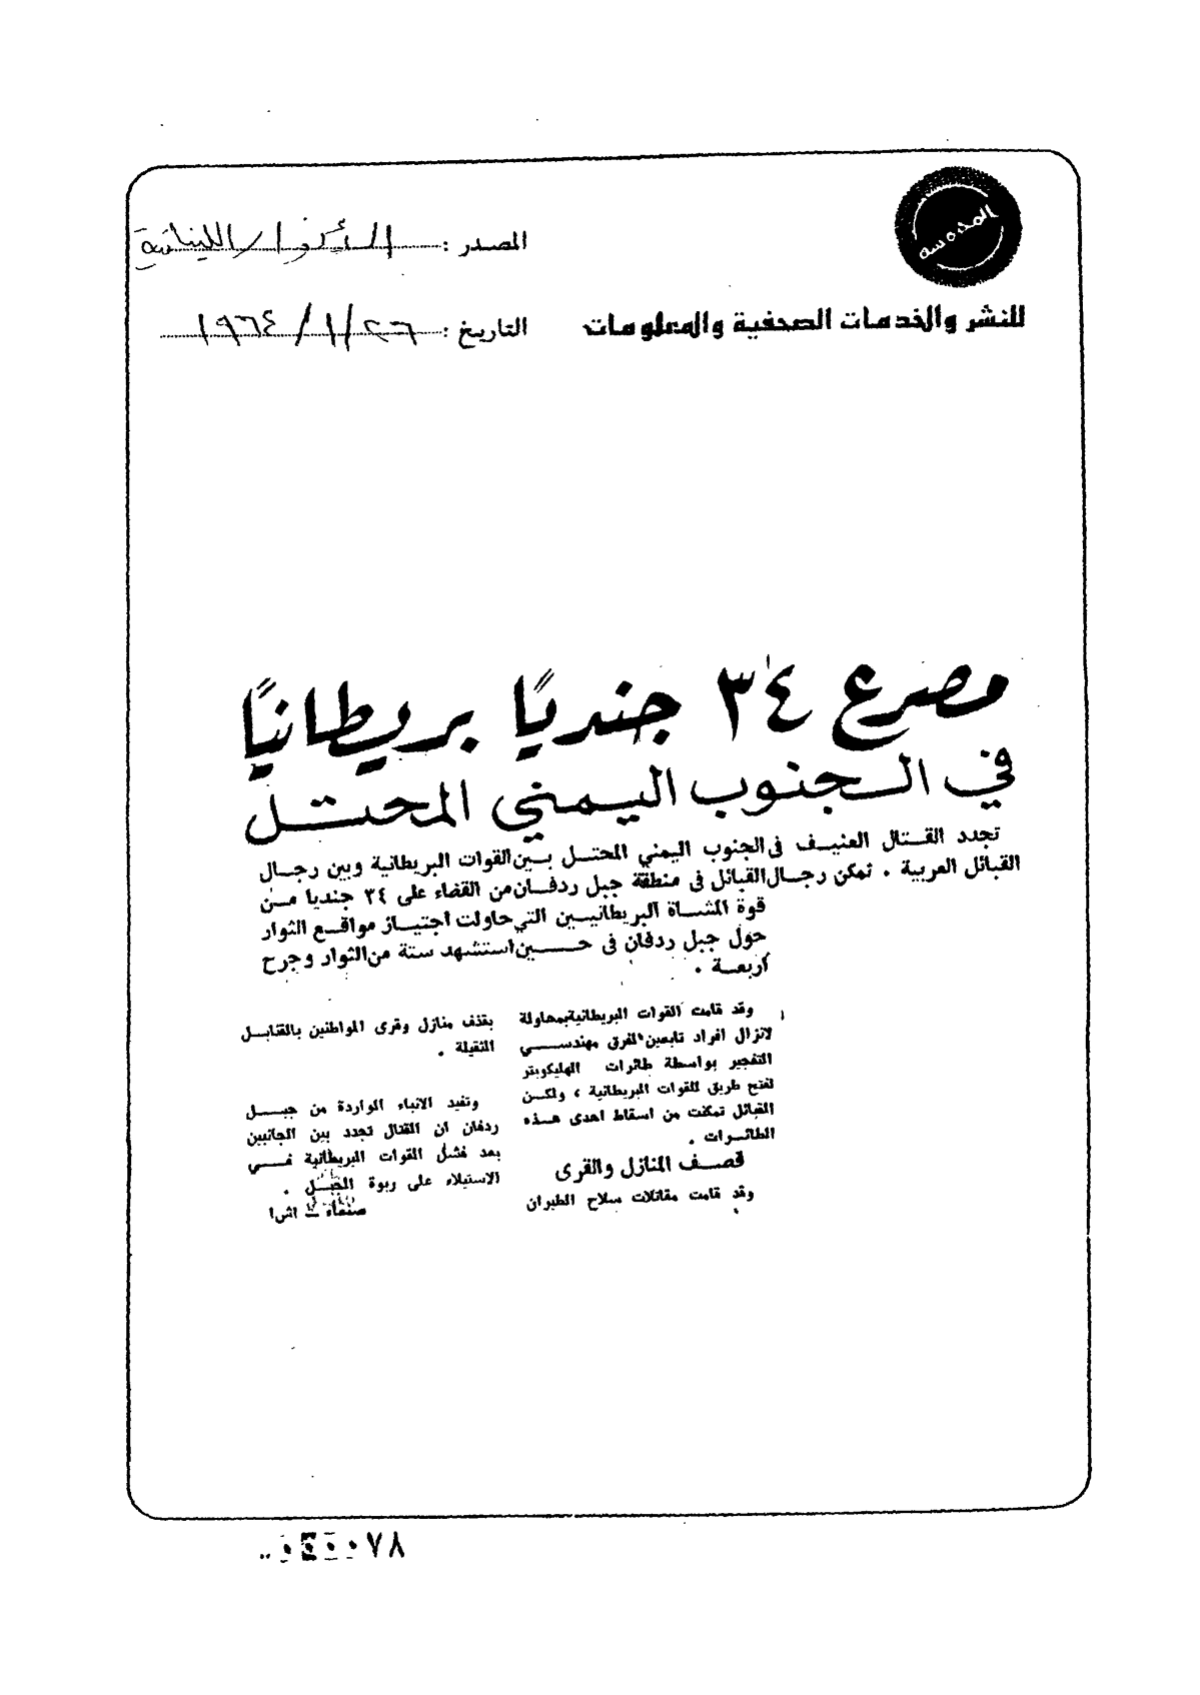 المدوسه
للنشر والخدمات الصحفية والمعلومات
المصدر : الأنوار اللبنانية
التاريخ : ٢٦/١/١٩٦٤
مصرع ٣٤ جنديًا بريطانيًا
في الـجنوب اليـمني المحتـل
تجدد القتـال العنيـف فى الجنوب اليمني المحتـل بـين القوات البريطانية وبين رجـال
القبائل العربية . تمكن رجـال القبائل فى منطقة جبل ردفـان من القضاء على ٣٤ جنديا مـن
قوة المشـاة البريطانيـين التي حاولت اجتيـاز مواقـع الثوار
حول جبل ردفان فى حـــين استشهد ستة من الثوار وجرح
اربعـة .
وقد قامت القوات البريطانية بمحاولة
لانزال افراد تابعين لفرق مهندســي
التفجير بواسطة طائرات الهليكوبتر
لفتح طريق للقوات البريطانية ، ولكـن
القبائل تمكنت من اسقاط احدى هـذه
الطائـرات .
قصـف المنازل والقرى
وقد قامت مقاتلات سلاح الطيران
بقذف منازل وقرى المواطنين بالقنابـل
الثقيلة .
وتفيد الانباء الواردة من جبــل
ردفان ان القتال تجدد بين الجانبين
بعد فشل القوات البريطانية فــي
الاستيلاء على ربوة الجبـل .
صنعاء ـ اش ا